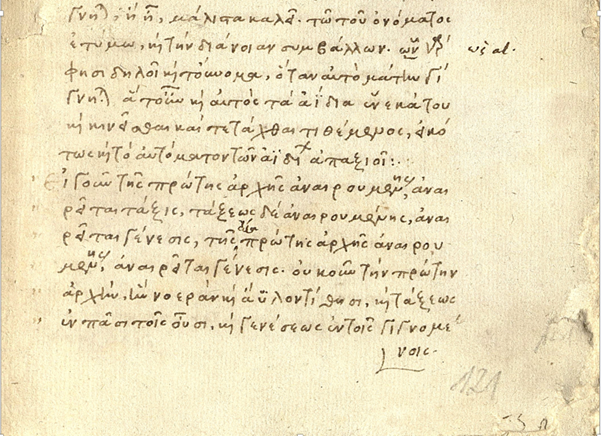 μάλιστα καλεῖ. τῶ τοῦ ὀνόματος
ἐτύμω, καὶ τὴν διάνοιαν συμβάλλων. ὡς al.
φησι δηλοῖ καὶ τὸ ὄνομα, ὅταν αὐτὸ μάτην γί
γνηται. καὶ αὐτὸς τὰ ἀΐδια ἕνεκά του
καὶ κινεῖσθαι καὶ τετάχθαι τιθέμενος, εἰκό
τως καὶ τὸ αὐτόματον τῶν ἀϊδίων ἀπαξιοῖ:
Εἰ γοῦν τῆς πρώτης ἀρχῆς ἀναιρουμένης, ἀναι
ρεῖται τάξις, τάξεως δὲ ἀναιρουμένης, ἀναι
ρεῖται γένεσις, τῆς ἄρα πρώτης ἀρχῆς ἀναιρου
μένης, ἀναιρεῖται γένεσις. οὐκοῦν τὴν πρώτην
ἀρχὴν, ἣν νοερὰν καὶ ἄϋλον τίθησι, καὶ τάξεως
ἐν πᾶσι τοῖς οὖσι, καὶ γενέσεως ἐν τοῖς γιγνομέ
νοις.
121